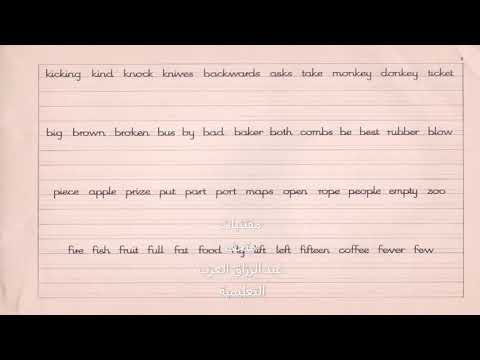 kicking kind knock knives backwards asks take monkey donkey ticket
big brown broken bus by bad baker both combs be best rubber blow
piece apple prize put part port maps open rope people empty zoo
مقتنيات
fire fish fruit full fat food fly lift left fifteen coffee fever few
عبدالرزاق العرب
التعليمية